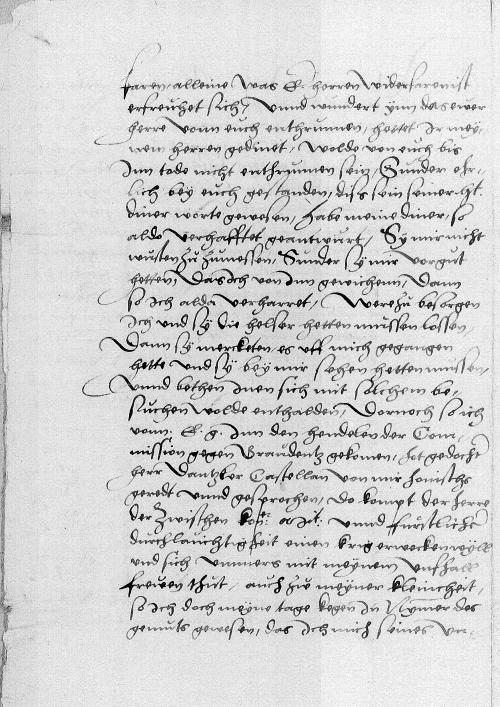 faren, alleine was E. herren widerfaren ist
erfreuhet sich, vnnd wundert ynn das ewer
herre vonn euch enthrunnen, hettet Ir mey-
nem herren gedinet, wolde von euch bis
Inn tode nicht enthrunnen sein, Sunder ehr-
lich bey euch gestanden, dis sein seiner
diner worte gewesen, habe meine diner, so
aldo verhafftet geantwurt, Sy mir nicht
wusten zu zumessen, Sunder sy mir vorgut
hetten, Das ich von Inn gewichenn, Dann
so ich alda verharret, Were zu besorgen
ich vnd sy die helser hetten mussen lossen
Dann sy mercketen, es vff mich gegangen
hette vnd sy bey mir sehen hetten mussen,
vnnd bethen Inen sich mit solchem be-
suchen wolde enthalden, Dornoch so ich
vonn E. g. Inn den hendelen der Com-
mission gegen Graudentz gekomen, hat gedocht
herr Dantzker Castellan von mir honischs
geredt vnnd gesprochen, do kompt der herre
der zwischen vnnd furstlicher
durchlauchtigkeit einen krig erwecken
vnd sich vnners mit meynem vnfhall
freuen thut, auch zw meyner kleinheit,
so ich doch meyne tage kegen In Nymer des
gemuts gewesen, das ich mich seines vn-